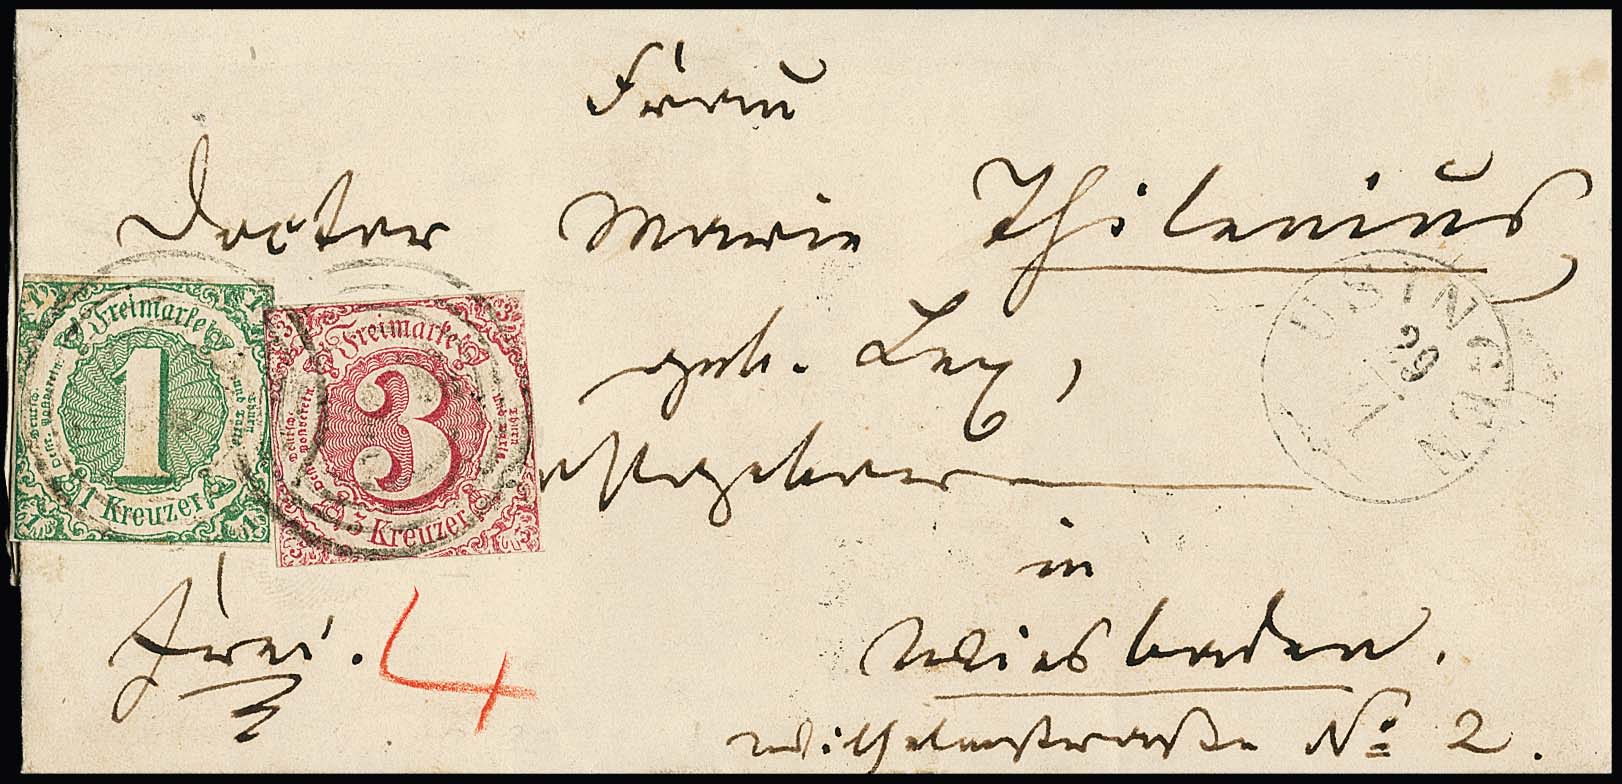 Frau
Doctor Marie Thilenius,
geb. Lex,
in
Wiesbaden.
Wilhelmstraße No 2.
Frei.
4
Freimarke
1
1 Kreuzer
Freimarke
3
3 Kreuzer
USINGEN
29